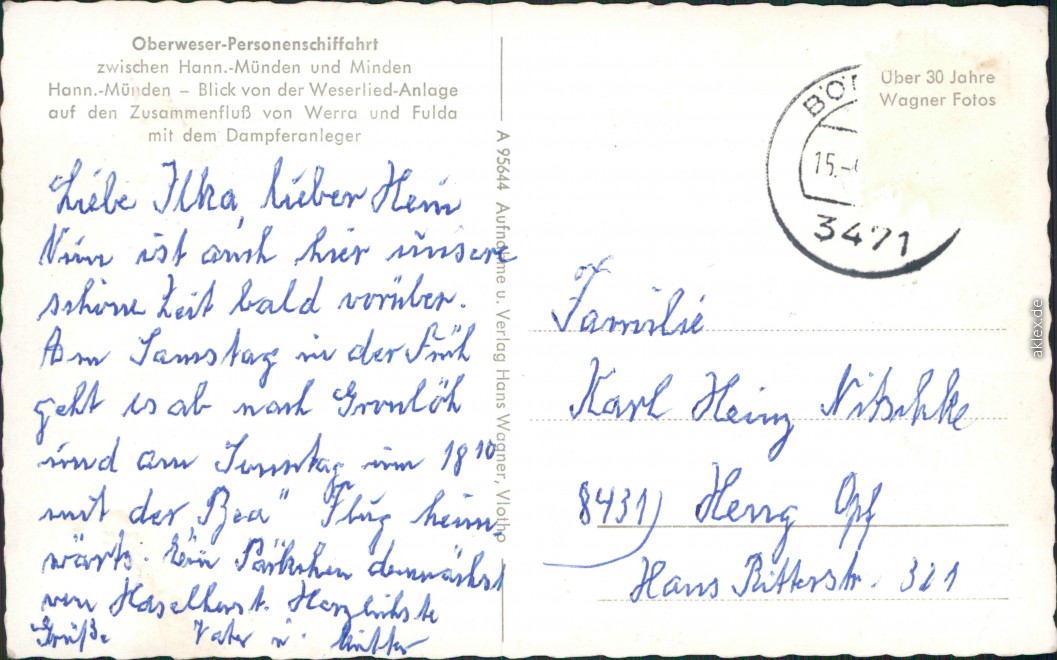 Oberweser-Personenschiffahrt
zwischen Hann.-Münden und Minden
Hann.-Münden – Blick von der Weserlied-Anlage
auf den Zusammenfluß von Werra und Fulda
mit dem Dampferanleger
Liebe Ilka, lieber Hein
Nun ist auch hier unsere
schöne Zeit bald vorüber.
Am Samstag in der Früh
geht es ab nach
und am Sonntag um 18¹⁰
mit der „Bea" Flug heim
wärts. Ein Päckchen demnächst
von Haselhorst. Herzlichste
Grüße Vater u. Mutter
A 95644 Aufnahme u. Verlag Hans Wagner, Vlotho
Über 30 Jahre
Wagner Fotos
BÖ
15.-
3471
Familie
Karl Heinz Nitschke
8431) Heng Opf
Hans Ritterstr. 321
aklex.de